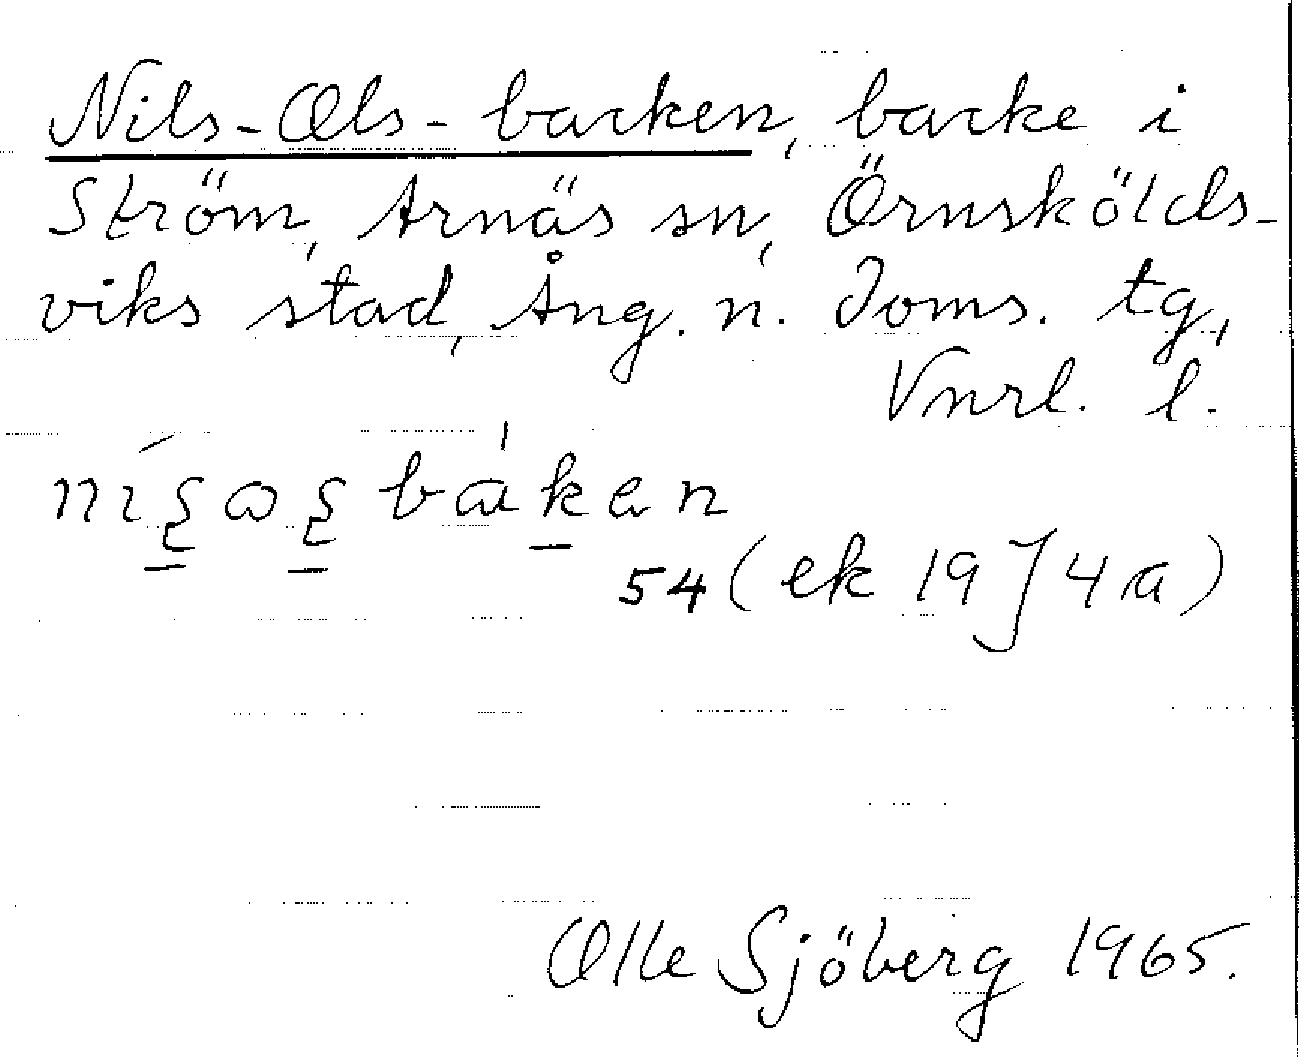 Nils-Ols-backen, backe i
Ström, Arnäs sn, Örnskölds-
viks stad, Ång. n. Doms. tg,
Vnrl. l.
54 (ek 19 J 4 a)
Olle Sjöberg 1965.